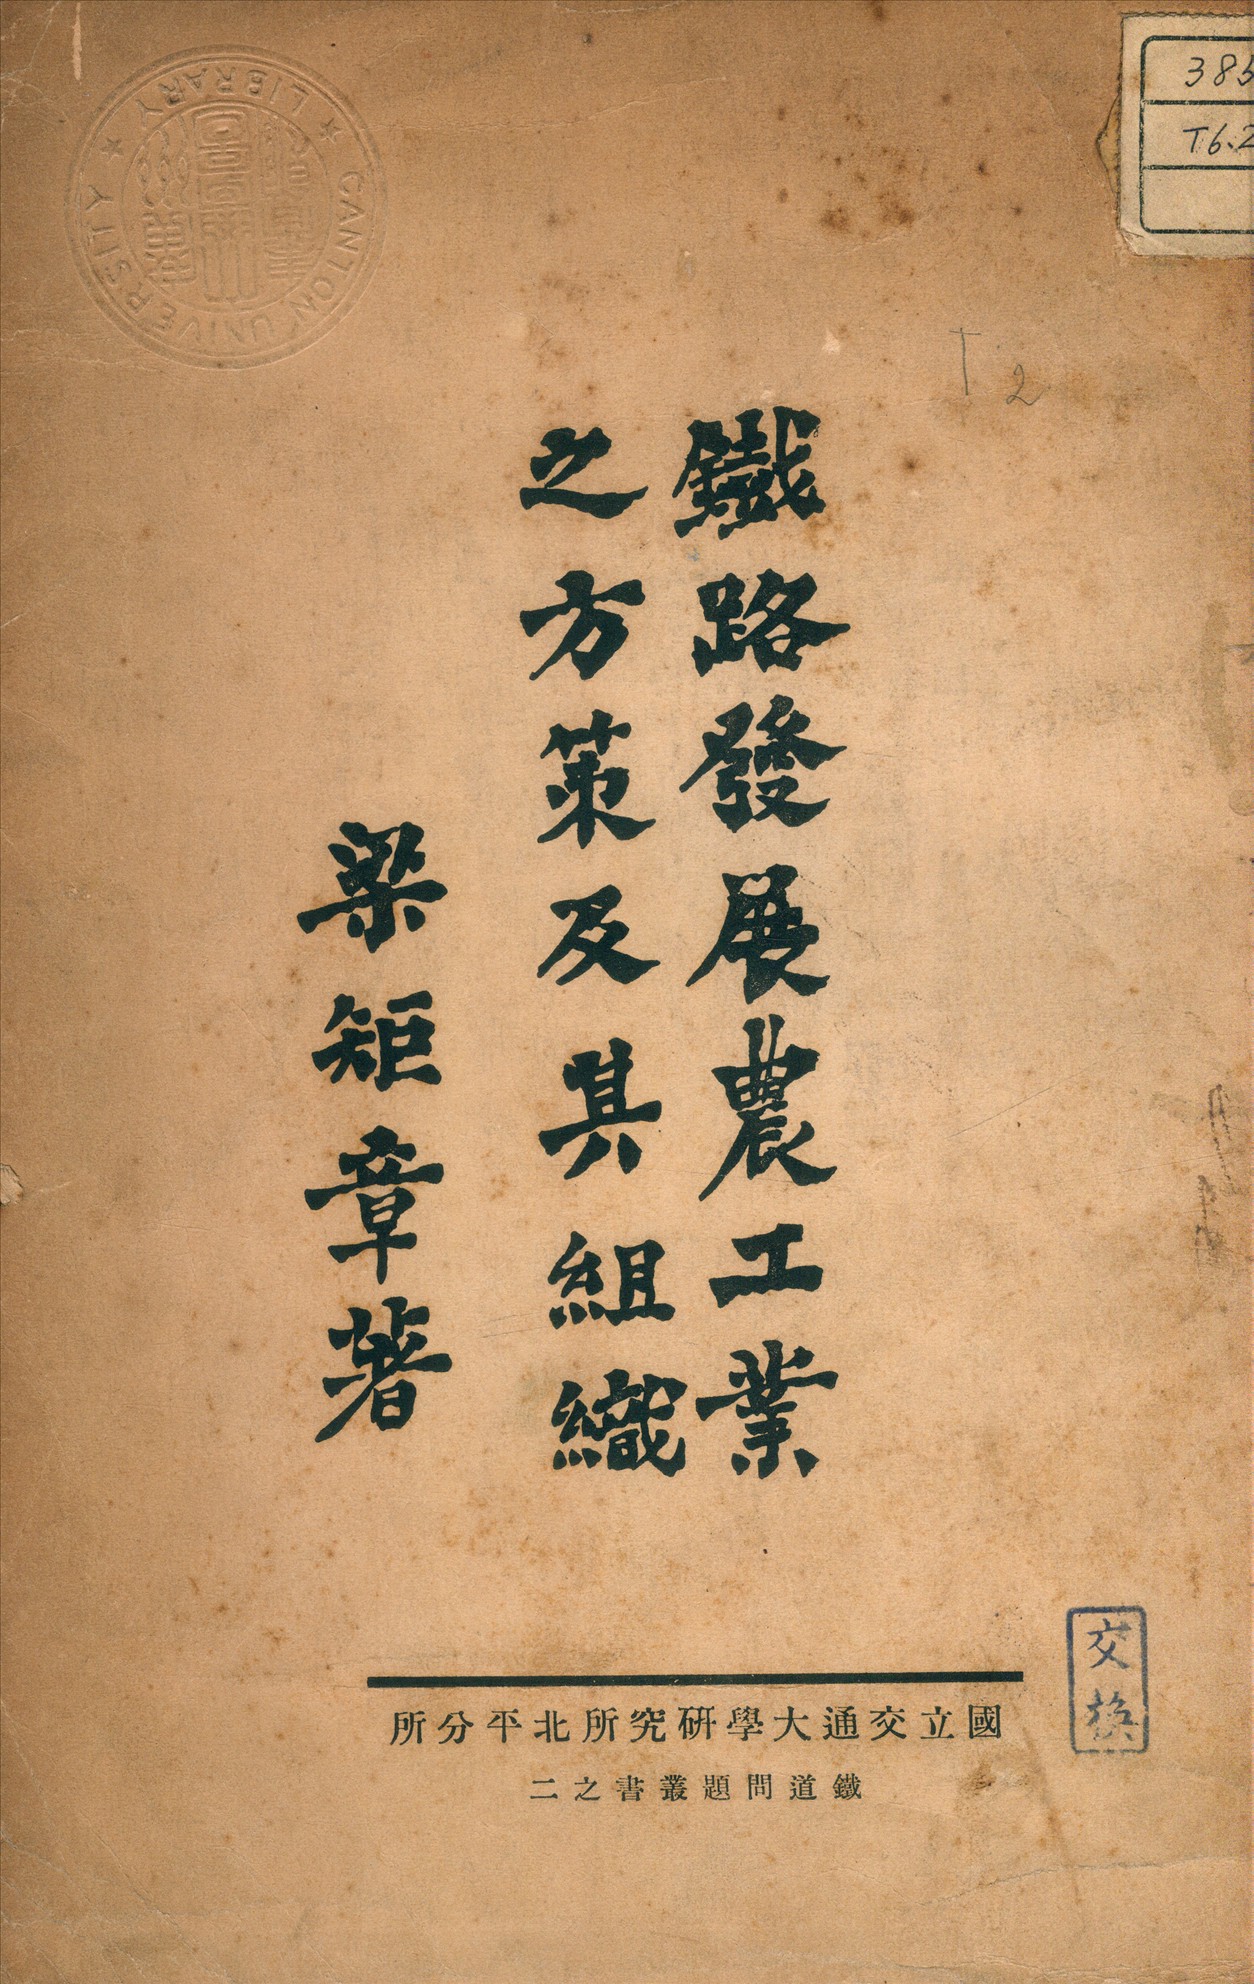 385
T6.2
LIBRARY
CANTON UNIVERSITY
T 2
鐵路發展農工業
之方策及其組織
梁矩章著
國立交通大學研究所北平分所
鐵道問題叢書之二
交換